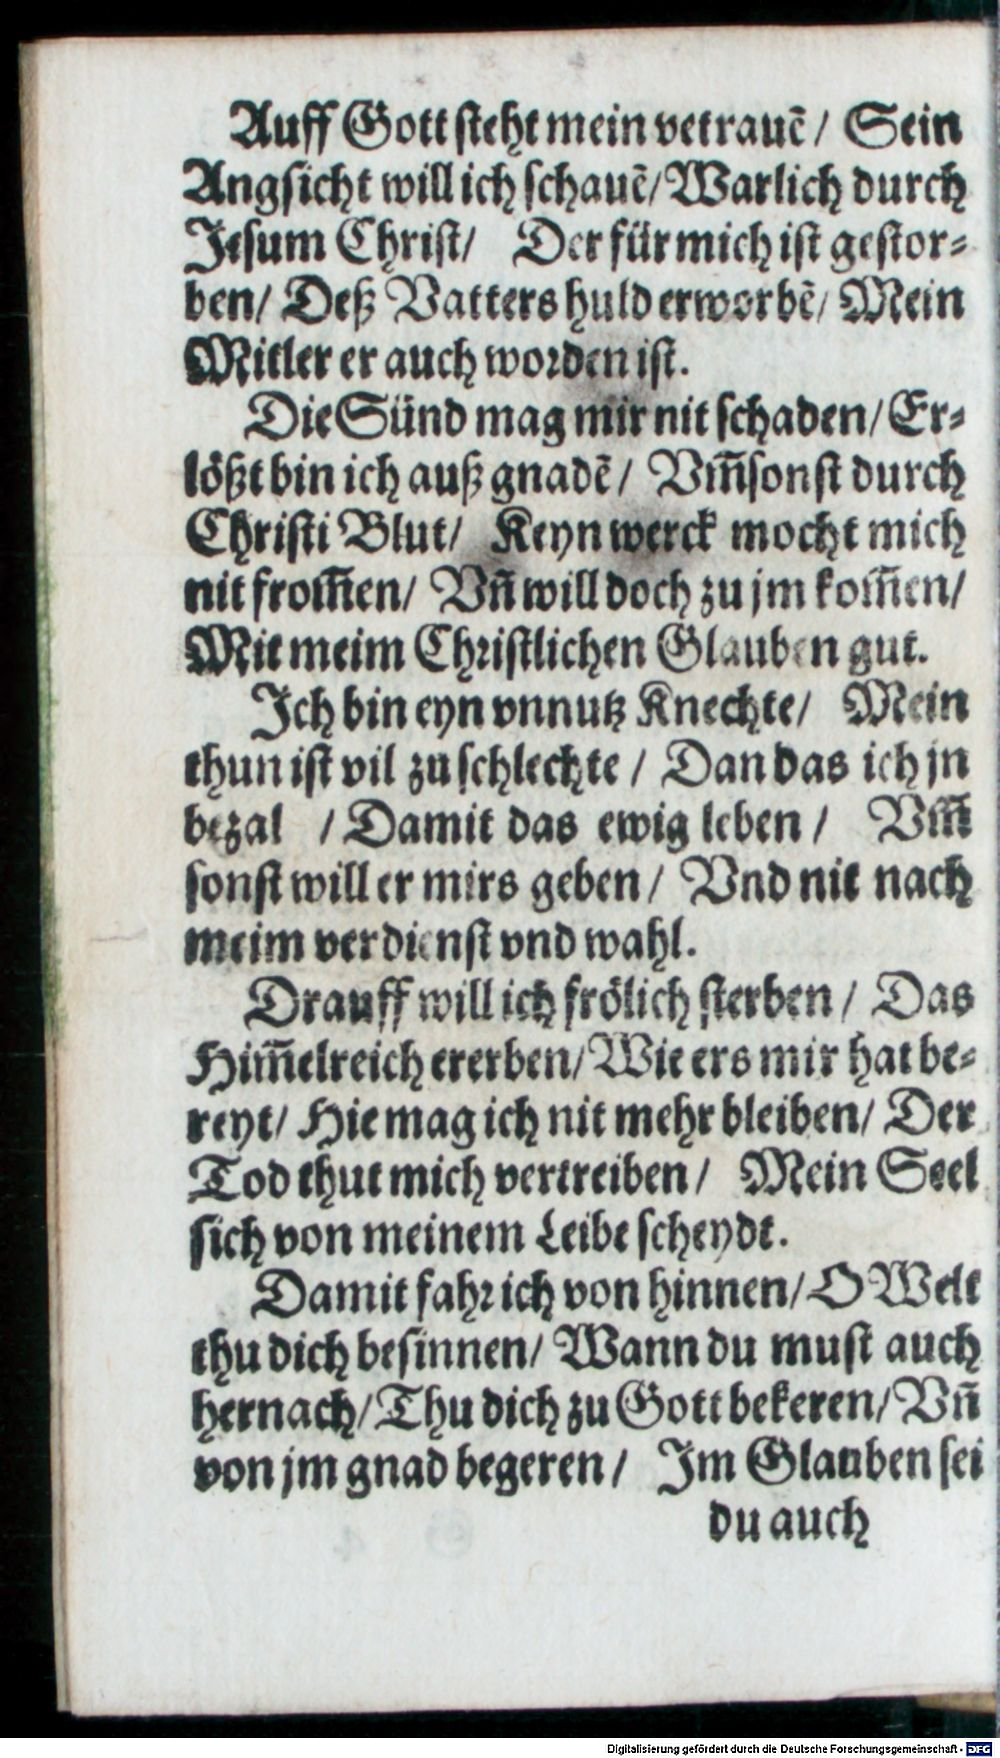 Auff Gott ſteht mein vetrauẽ/ Sein
Angſicht will ich ſchauẽ/ Warlich durch
Jeſum Chriſt/ Der für mich iſt geſtor⸗
ben/ Deß Vatters huld erworbẽ/ Mein
Mitler er auch worden iſt.
Die Sünd mag mir nit ſchaden/ Er⸗
lößt bin ich auß gnadẽ/ Vm̃ſonſt durch
Chriſti Blut/ Keyn werck mocht mich
nit from̃en/ Vñ will doch zu jm kom̃en/
Mit meim Chriſtlichen Glauben gut.
Jch bin eyn vnnutz Knechte/ Mein
thun iſt vil zu ſchlechte / Dan das ich jn
bezal / Damit das ewig leben / Vm̃
ſonſt will er mirs geben / Vnd nit nach
meim verdienſt vnd wahl.
Drauff will ich frölich ſterben / Das
Him̃elreich ererben/ Wie ers mir hat be⸗
reyt/ Hie mag ich nit mehr bleiben/ Der
Tod thut mich vertreiben / Mein Seel
ſich von meinem Leibe ſcheydt.
Damit fahr ich von hinnen/ O Welt
thu dich beſinnen/ Wann du muſt auch
hernach/ Thu dich zu Gott bekeren/ Vñ
von jm gnad begeren / Jm Glauben ſei
du auch
Digitalisierung gefördert durch die Deutsche Forschungsgemeinschaft - DFG